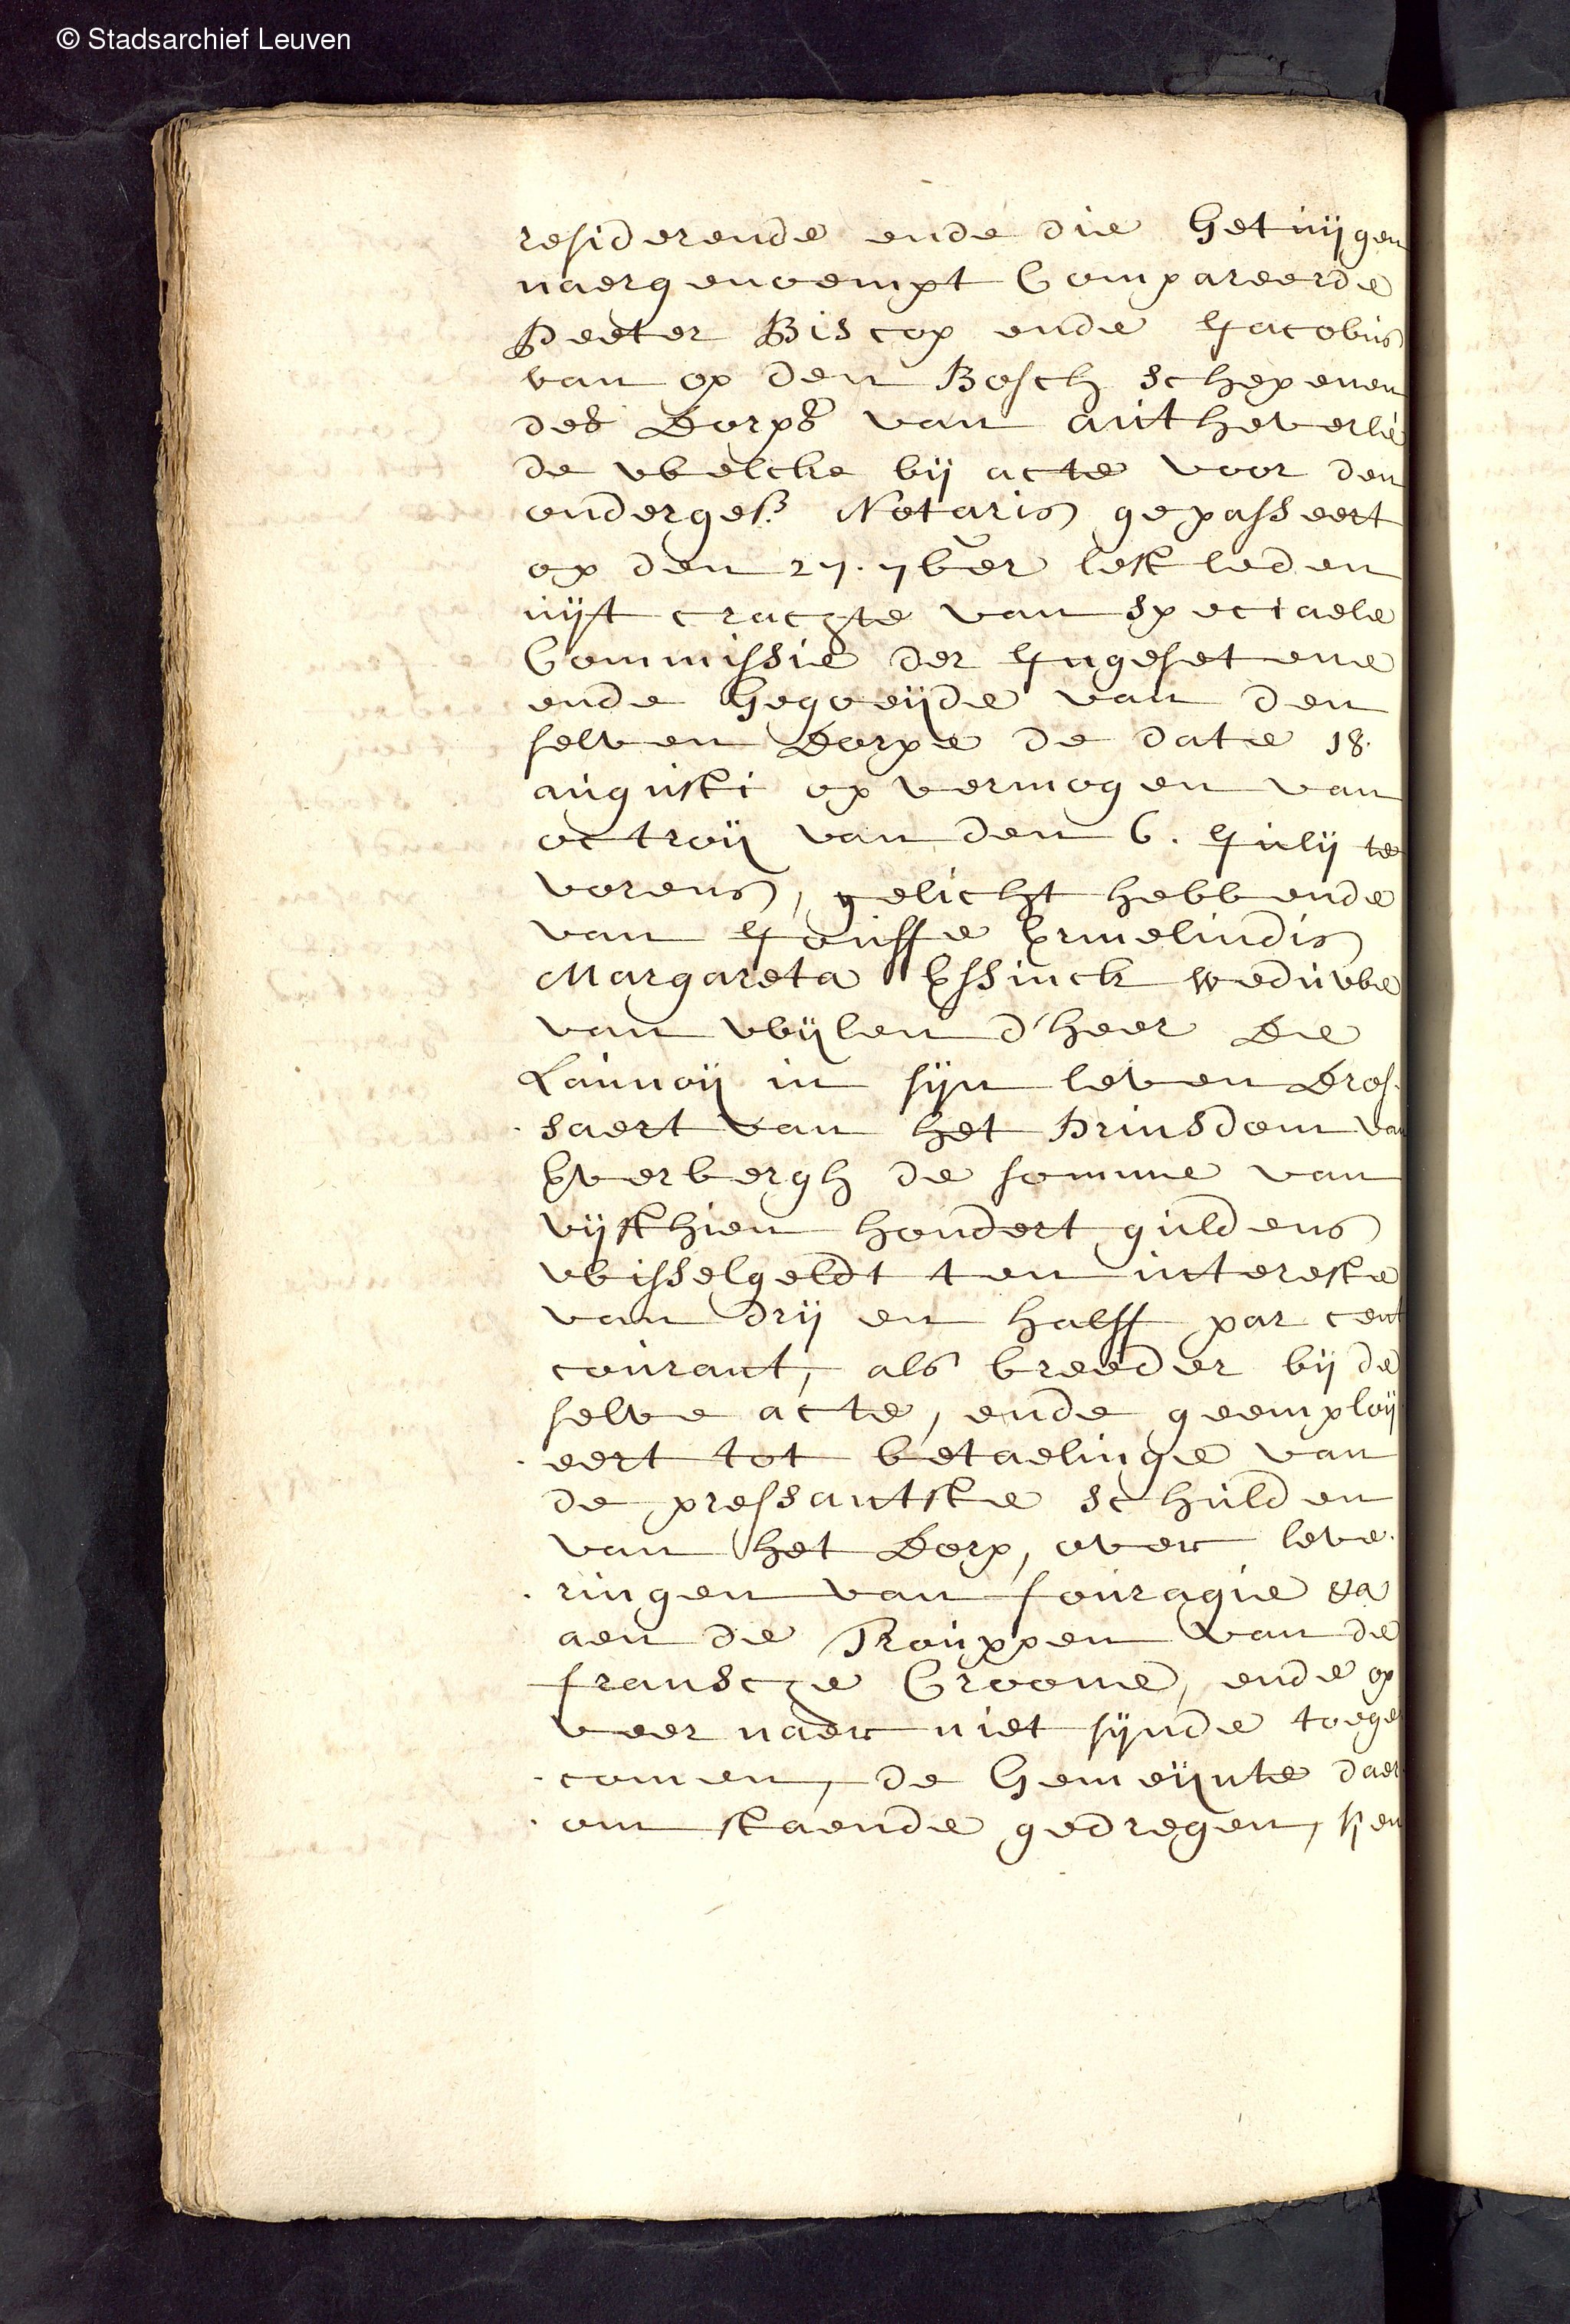 © Stadsarchief Leuven
residerende ende die Getuijgen
naergenoempt Compareerde
Peeter Biscop ende Jacobus
van op den Bosch schepenen
des Dorps van autheverlé
de welcke bij acte voor den
onderges. Notaris gepasseert
op den 27. 7ber lest leden
uijt crachte van speciaele
Commissie der Ingesetene
ende Gegoeijde van den
selven Dorpe de date 18.
augusti op vermogen van
octroij van den 6. Julij te
vorens, gelicht hebbende
van Jouffe Ermelindis
Margareta Essinck weduwe
van wijlen d'heer De
Launoij in sijn leven Dros.
saert van het Prinsdom van
Everbergh de somme van
vijfthien hondert guldens
wisselgeldt ten intereste
van drij en halff par cent
courant, als breeder bij de
selve acte, ende geemploij
eert tot betaelinge van
de pressantste schulden
van het Dorp, over leve.
ringen van fouragie &a
aen de Trouppen van de
fransche Croone, ende op
veer naer niet sijnde toege
comen, de Gemeijnte daer
om staende gedregen, sijn